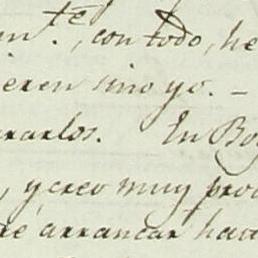 te, con todo, he
eren sino yo. –
rarlos. En Bog
, y creo muy pro
re arrancar hav